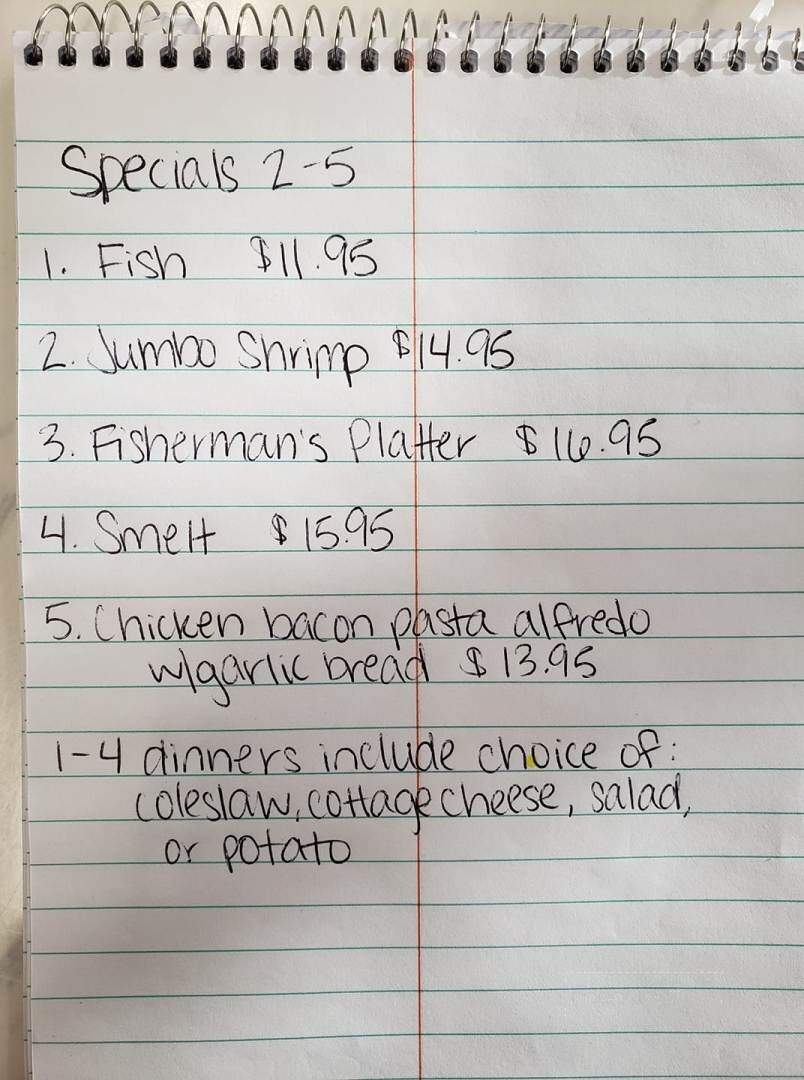 Specials 2-5
1. Fish $11.95
2. Jumbo Shrimp $14.95
3. Fisherman's Platter $16.95
4. Smelt $15.95
5. Chicken bacon pasta alfredo
w/garlic bread $13.95
1-4 dinners include choice of:
coleslaw, cottage cheese, salad,
or potato